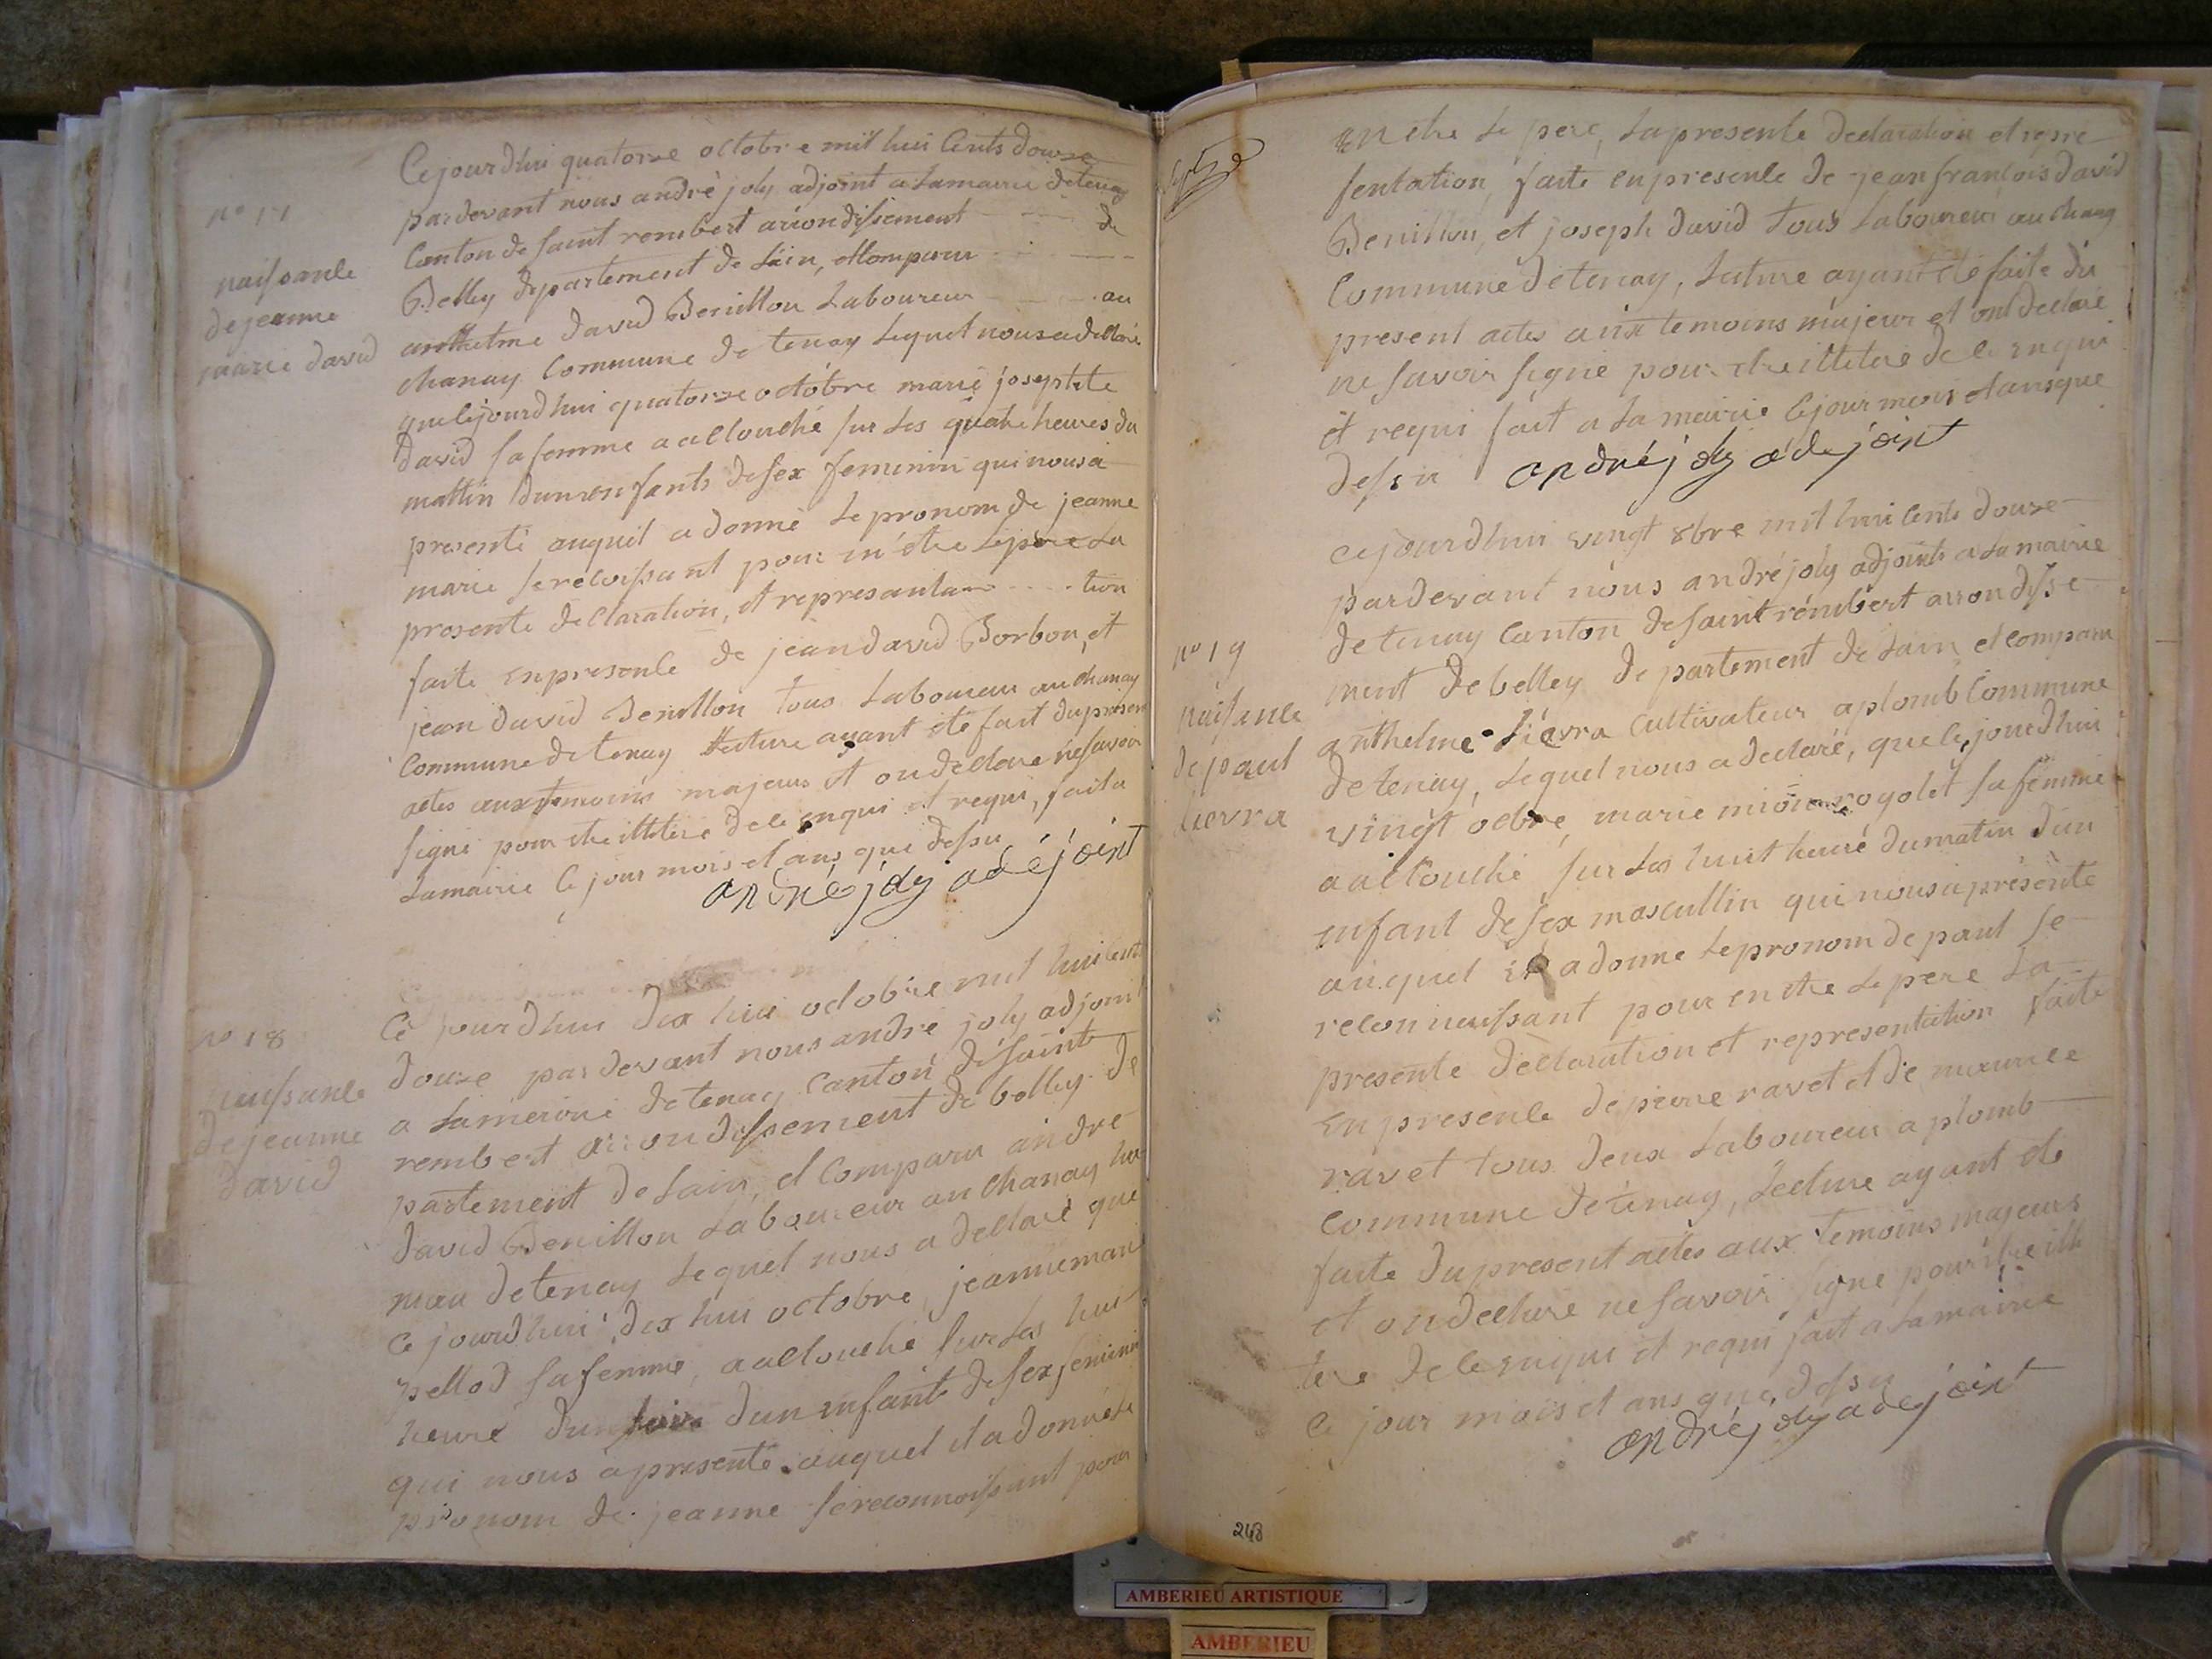 n° 17
naissance
de jeanne
marie david
Cejourdhui quatorze octobre mil hui Cents douze
pardevant nous andré joly adjoint a Lamairie detenay
Canton de saint rembert ariondissement de
Belley departement de Lain, et Comparu
anthelme david Benillon Laboureur au
chanay Commune de tenay Lequel nous a declaré
que Cejourdhui quatorze octobre marie josephte
david sa femme a accouché sur Les quatre heures du
mattin dun enfants de sex feminin qui nous a
presenté auquil a donné Le pronom de jeanne
marie se recoissant pour m'etre Le pere La
presente declaration, et represanta tion
faite en presence de jean david Borbon, et
jean david Benillon tous Laboureur au chanay
Commune de tenay Lecture ayant été fait du presen
actes aux temoins majeurs et on declare ne savoir
signé pour etre illetere de ce enqui et requi, fait a
Lamairie Ce jour mois et ans que dessu
andré joly adéjoint
n° 18
naissance
de jeanne
david
Ce jourdhui dix hui octobre mil hui cent
douze pardevant nous andré joly adjoint
a Lameirie de tenay Canton de saint
rembert arrondissement de belley de
partement de Lain, et Comparu andre
david Benillon Laboureur au chanay ha
meau de tenay Lequel nous a declaré que
Ce jourdhui dix hui octobre, jeanne marie
pellod sa femme, a accouché sur Les hui
heure du soir dun enfant de sex feminin
qui nous a presenté auquel il a donné Le
pronom de jeanne se reconnoissant pour
en etre Le pere, La presente declaration et repre
sentation, faite en presence de jean francois david
Benillon, et joseph david tous Laboureur au chanay
Commune de tenay, Lecture ayant été faite du
present actes aux temoins majeur et ont declaré
ne savoir signé pour etre illetere de ce enqui
et requi fait a La mairie Ce jour mois et ans que
dessu andré joly adejoint
n° 19
naissance
de paul
Lievra
Cejourdhui vingt 8bre mil hui cents douze
pardevant nous andré joly adjoint a La mairie
de tenay Canton de saint rémbert arrondisse
ment de belley departement de Lain, et comparu
anthelme Liévra Cultivateur a plomb Commune
de tenay, Lequel nous a declaré, que Ce jourdhui
vingt ocbre, marie rogolet sa femme
a accouché sur Les huit heure du matin dun
enfant de sex mascullin qui nous a présenté
auquel il a donne Le pronom de paul se
reconnaissant pour en etre Le pere La
presente declaration et representation faite
en presence de pierre ravet et de maurice
ravet tous deux Laboureur a plomb
Commune de tenay, Lecture ayant ete
faite du present actes aux temoins majeurs
et on declare ne savoir signe pour etre ille
tere de ce enqui et requi fait a La mairie
Ce jour mois et ans que dessu
andré joly adejoint
248
AMBERIEU ARTISTIQUE
AMBERIEU